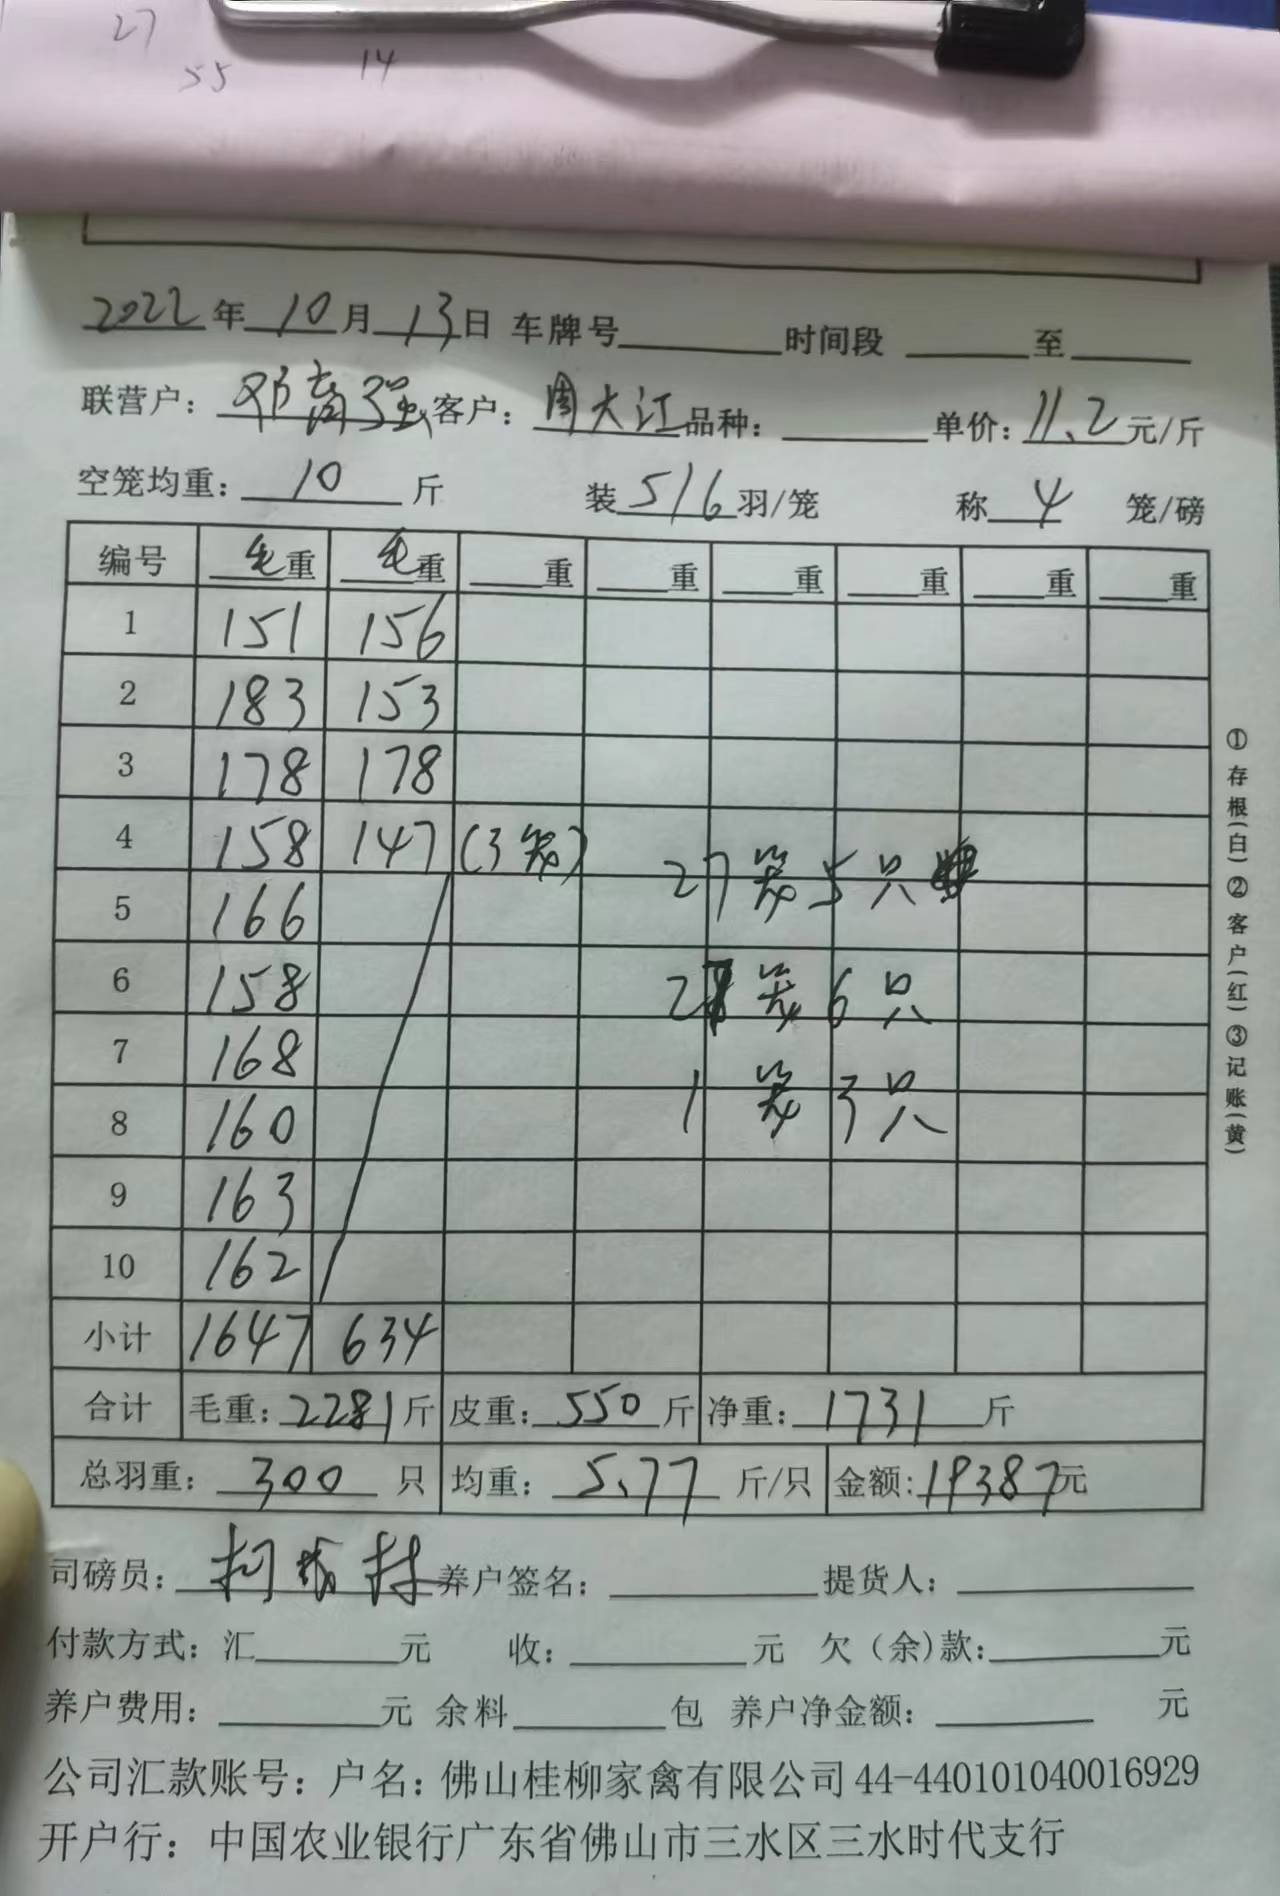 27
55 14
2022年10月13日 车牌号 时间段 至
联营户：邓高强 客户：周大江 品种： 单价：11.2元/斤
空笼均重：10斤 装5/6羽/笼 称4笼/磅
编号 毛重 毛重 重 重 重 重 重 重
1 151 156
2 183 153
3 178 178
4 158 147 (3笼)
27笼5只
5 166
6 158 27笼6只
7 168
8 160 1笼3只
9 163
10 162
小计 1647 634
合计 毛重：2281斤 皮重：550斤 净重：1731斤
总羽重：300只 均重：5.77斤/只 金额：19387元
司磅员：柯 养户签名： 提货人：
付款方式：汇 元 收： 元 欠（余)款： 元
养户费用： 元 余料 包 养户净金额： 元
公司汇款账号：户名：佛山桂柳家禽有限公司 44-440101040016929
开户行：中国农业银行广东省佛山市三水区三水时代支行
①存根(白)②客户(红)③记账(黄)